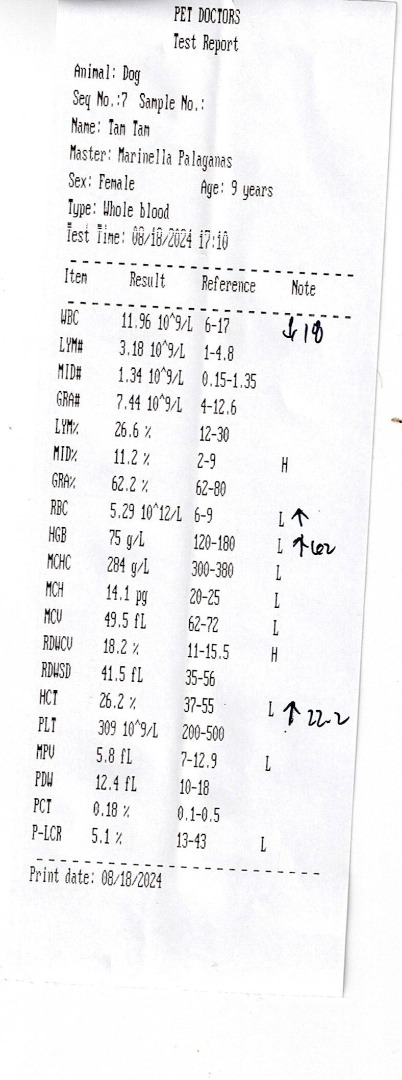 PET DOCTORS
Test Report
Animal: Dog
Seq No.:7 Sample No.:
Name: Tam Tam
Master: Marinella Palaganas
Sex: Female Age: 9 years
Type: Whole blood
Test Time: 08/18/2024 17:10
Item Result Reference Note
WBC 11.96 10^9/L 6-17 ↓ 18
LYM# 3.18 10^9/L 1-4.8
MID# 1.34 10^9/L 0.15-1.35
GRA# 7.44 10^9/L 4-12.6
LYM% 26.6 % 12-30
MID% 11.2 % 2-9 H
GRA% 62.2 % 62-80
RBC 5.29 10^12/L 6-9 L ↑
HGB 75 g/L 120-180 L ↑ 62
MCHC 284 g/L 300-380 L
MCH 14.1 pg 20-25 L
MCV 49.5 fL 62-72 L
RDWCV 18.2 % 11-15.5 H
RDWSD 41.5 fL 35-56
HCT 26.2 % 37-55 L ↑ 22.2
PLT 309 10^9/L 200-500
MPV 5.8 fL 7-12.9 L
PDW 12.4 fL 10-18
PCT 0.18 % 0.1-0.5
P-LCR 5.1 % 13-43 L
Print date: 08/18/2024